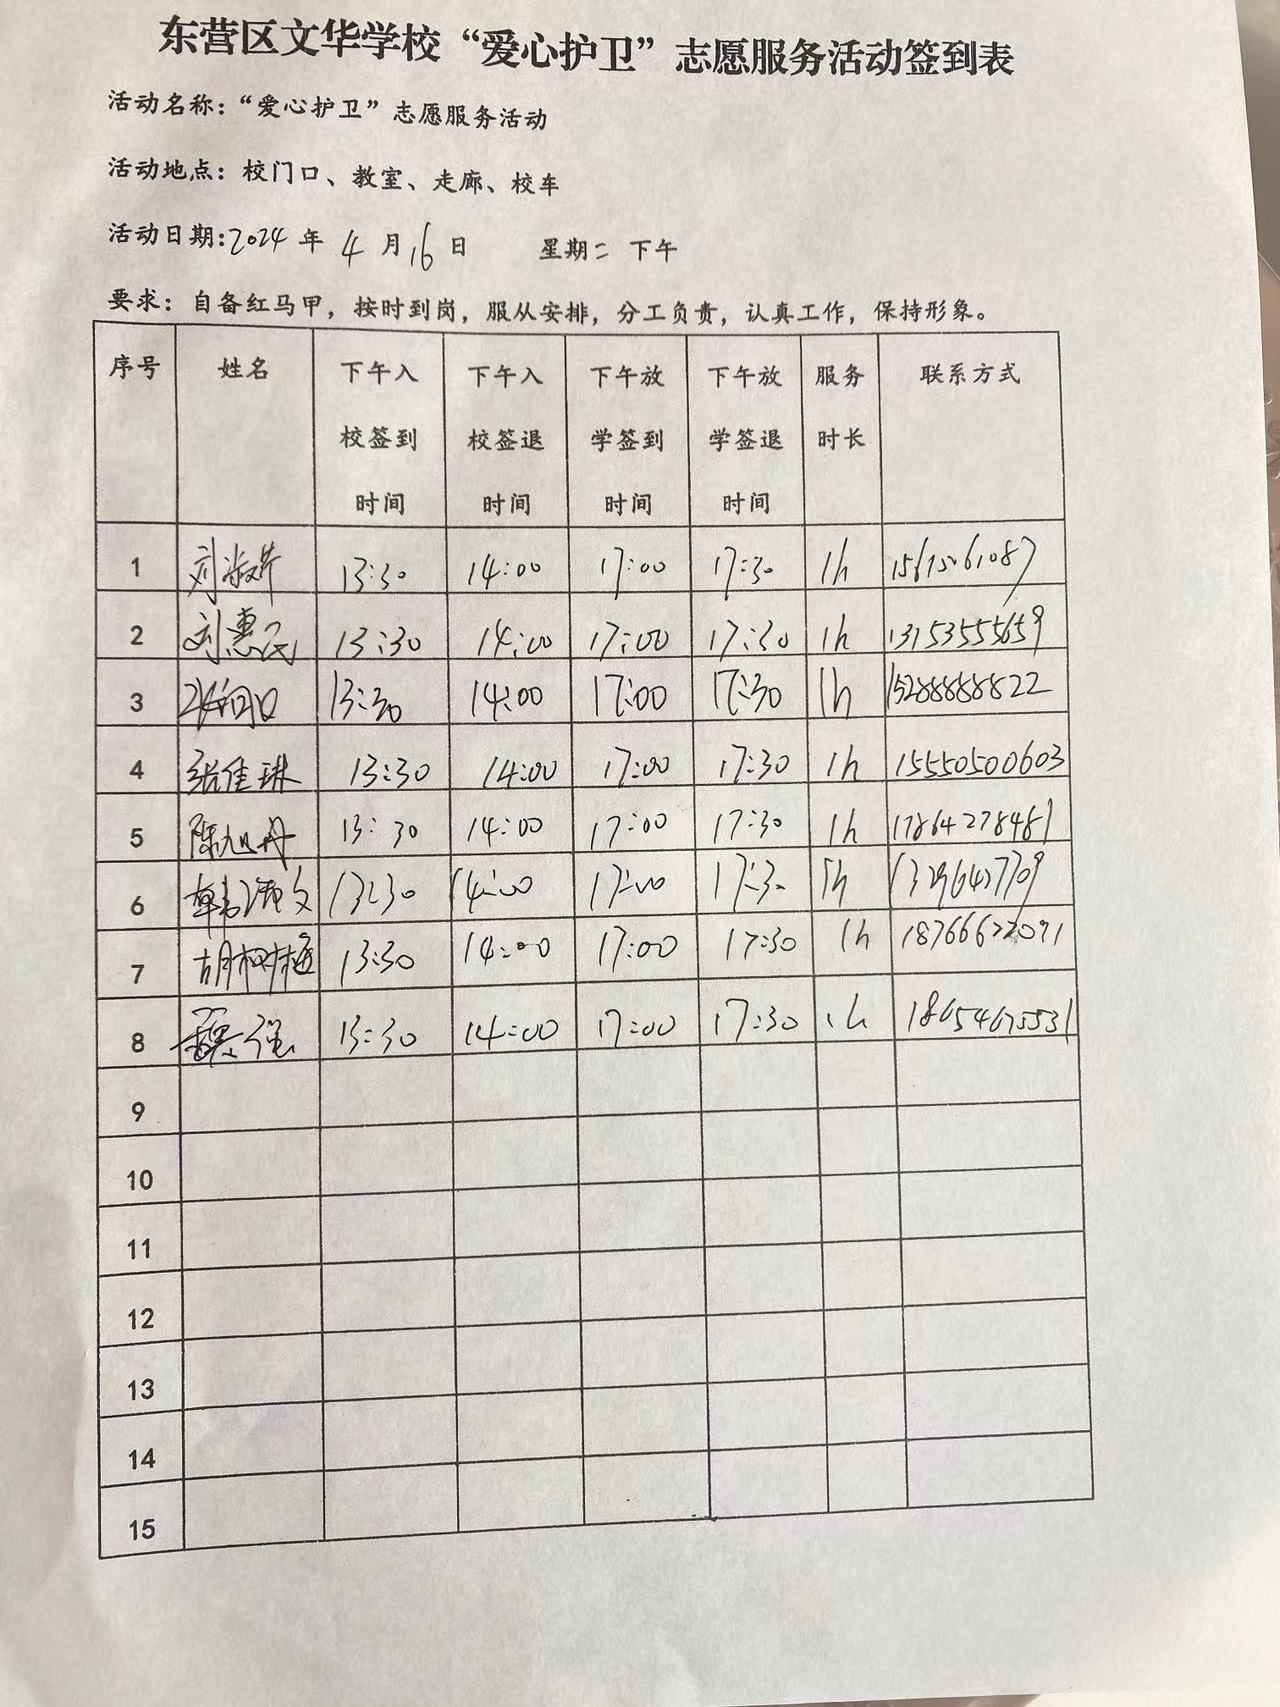 东营区文华学校“爱心护卫”志愿服务活动签到表
活动名称：“爱心护卫”志愿服务活动
活动地点：校门口、教室、走廊、校车
活动日期:2024年 4月16日 星期二 下午
要求：自备红马甲，按时到岗，服从安排，分工负责，认真工作，保持形象。
序号 姓名 下午入校签到时间 下午入校签退时间 下午放学签到时间 下午放学签退时间 服务时长 联系方式
1 13:30 14:00 17:00 17:30 1h 15615261087
2 刘惠民 13:30 14:00 17:00 17:30 1h 13153555659
3 13:30 14:00 17:00 17:30 1h
4 张佳琳 13:30 14:00 17:00 17:30 1h 15550500603
5 陈旭丹 13:30 14:00 17:00 17:30 1h 17864278481
6 13:30 14:00 17:00 17:30 1h
7 13:30 14:00 17:00 17:30 1h 18766622091
8 魏强 13:30 14:00 17:00 17:30 1h
9
10
11
12
13
14
15